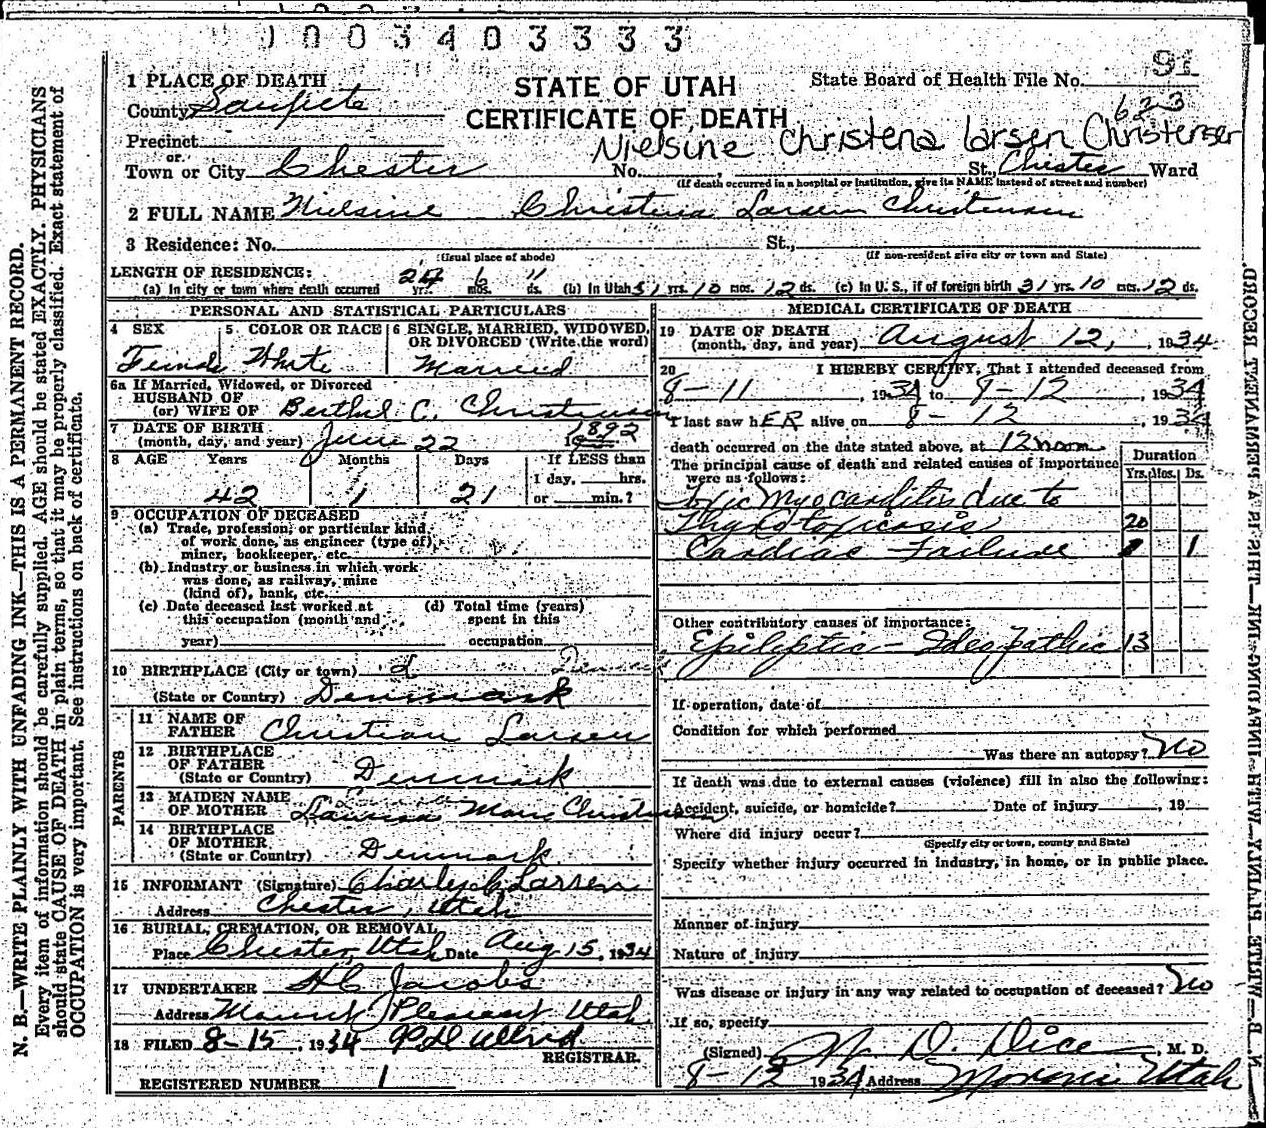 1003403333
1 PLACE OF DEATH
County Sanpete
STATE OF UTAH
CERTIFICATE OF DEATH
State Board of Health File No. 91
623
Precinct
or
Nielsine Christena Larsen Christensen
Town or City Chester No. St., Chester Ward
(If death occurred in a hospital or institution, give its NAME instead of street and number)
2 FULL NAME Nielsine Christina Larsen Christensen
3 Residence: No. St.,
(Usual place of abode) (If non-resident give city or town and State)
LENGTH OF RESIDENCE:
(a) In city or town where death occurred 24 yrs. 6 mos. 11 ds. (b) In Utah 31 yrs. 10 mos. 12 ds. (c) In U. S., if of foreign birth 31 yrs. 10 mos. 12 ds.
PERSONAL AND STATISTICAL PARTICULARS
4 SEX 5 COLOR OR RACE 6 SINGLE, MARRIED, WIDOWED, OR DIVORCED (Write the word)
Female White Married
6a If Married, Widowed, or Divorced
HUSBAND OF
(or) WIFE OF Berthel C. Christensen
7 DATE OF BIRTH
(month, day, and year) June 22 1892
8 AGE Years Months Days If LESS than
1 day, hrs.
42 1 21 or min.?
9 OCCUPATION OF DECEASED
(a) Trade, profession, or particular kind
of work done, as engineer (type of)
miner, bookkeeper, etc.
(b) Industry or business in which work
was done, as railway, mine
(kind of), bank, etc.
(c) Date deceased last worked at
this occupation (month and
year)
(d) Total time (years)
spent in this
occupation
10 BIRTHPLACE (City or town)
(State or Country) Denmark
PARENTS
11 NAME OF
FATHER Christian Larsen
12 BIRTHPLACE
OF FATHER
(State or Country) Denmark
13 MAIDEN NAME
OF MOTHER Marie Christensen
14 BIRTHPLACE
OF MOTHER
(State or Country) Denmark
15 INFORMANT (Signature) Charley C Larsen
Address Chester, Utah
16 BURIAL, CREMATION, OR REMOVAL
Place Chester, Utah Date Aug 15, 1934
17 UNDERTAKER H C Jacobs
Address Mount Pleasant Utah
18 FILED 8-15, 1934
REGISTRAR.
REGISTERED NUMBER 1
MEDICAL CERTIFICATE OF DEATH
19 DATE OF DEATH
(month, day, and year) August 12, 1934
20 I HEREBY CERTIFY, That I attended deceased from
8-11, 1934 to 8-12, 1934
I last saw hER alive on 8-12 1934
death occurred on the date stated above, at 12 noon
The principal cause of death and related causes of importance
were as follows:
Duration
Yrs. Mos. Ds.
Toxic Myocarditis due to
Thyrotoxicosis 20
Cardiac Failure 1
Other contributory causes of importance:
Epileptic - Ideopathic 13
If operation, date of
Condition for which performed
Was there an autopsy? No
If death was due to external causes (violence) fill in also the following:
Accident, suicide, or homicide? Date of injury , 19
Where did injury occur?
(Specify city or town, county and State)
Specify whether injury occurred in industry, in home, or in public place.
Manner of injury
Nature of injury
Was disease or injury in any way related to occupation of deceased? No
If so, specify
(Signed) D. Dice, M. D.
8-12 1934 Address Moroni Utah
N. B.—WRITE PLAINLY WITH UNFADING INK—THIS IS A PERMANENT RECORD.
Every item of information should be carefully supplied. AGE should be stated EXACTLY. PHYSICIANS
should state CAUSE OF DEATH in plain terms, so that it may be properly classified. Exact statement of
OCCUPATION is very important. See instructions on back of certificate.